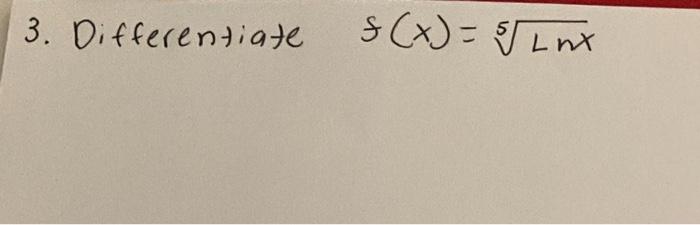 3. Differentiate f(x) = ⁵√Lnx